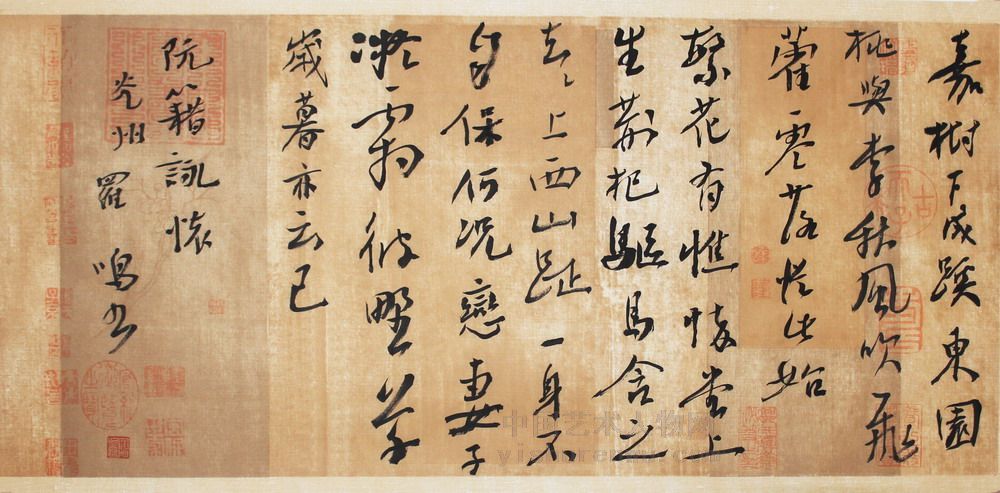 嘉樹下成蹊東園
桃與李秋風吹飛
藿零落從此始
繁花有憔悴堂上
生荊杞驅馬舍之
去々上西山趾一身不
自保何況戀妻子
凝霜被野草
歲暮亦云已
阮籍詠懷
光州羅鳴書
中国艺术人物网